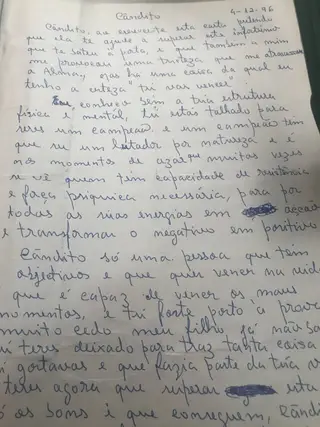 Cândito
4-12-96
Cândito, ao escrever esta carta pretendo
que ela te ajude a superar este infortúnio
que te bateu à porta, e que também a mim
me provocou uma tristeza que me atravessou
a Alma, mas há uma coisa da qual eu
tenho a certeza "tu vais vencer".
Eu, conheço bem a tua estrutura
física e mental, tu estás talhado para
seres um campeão e um campeão tem
que ser um lutador por natureza e é
nos momentos de azar que muitas vezes
se vê quem tem capacidade de resistência
e força psíquica necessária, para pôr
todas as suas energias em acção
e transformar o negativo em positivo
Cândito só uma pessoa que tem
objetivos e que quer vencer na vida
que é capaz de vencer os maus
momentos, e tu foste posto à prova
muito cedo meu filho, já não sa
teres deixado para traz tanta coisa
gostavas e que fazia parte da tua v
teres agora que superar esta
os bons é que conseguem, Cândi